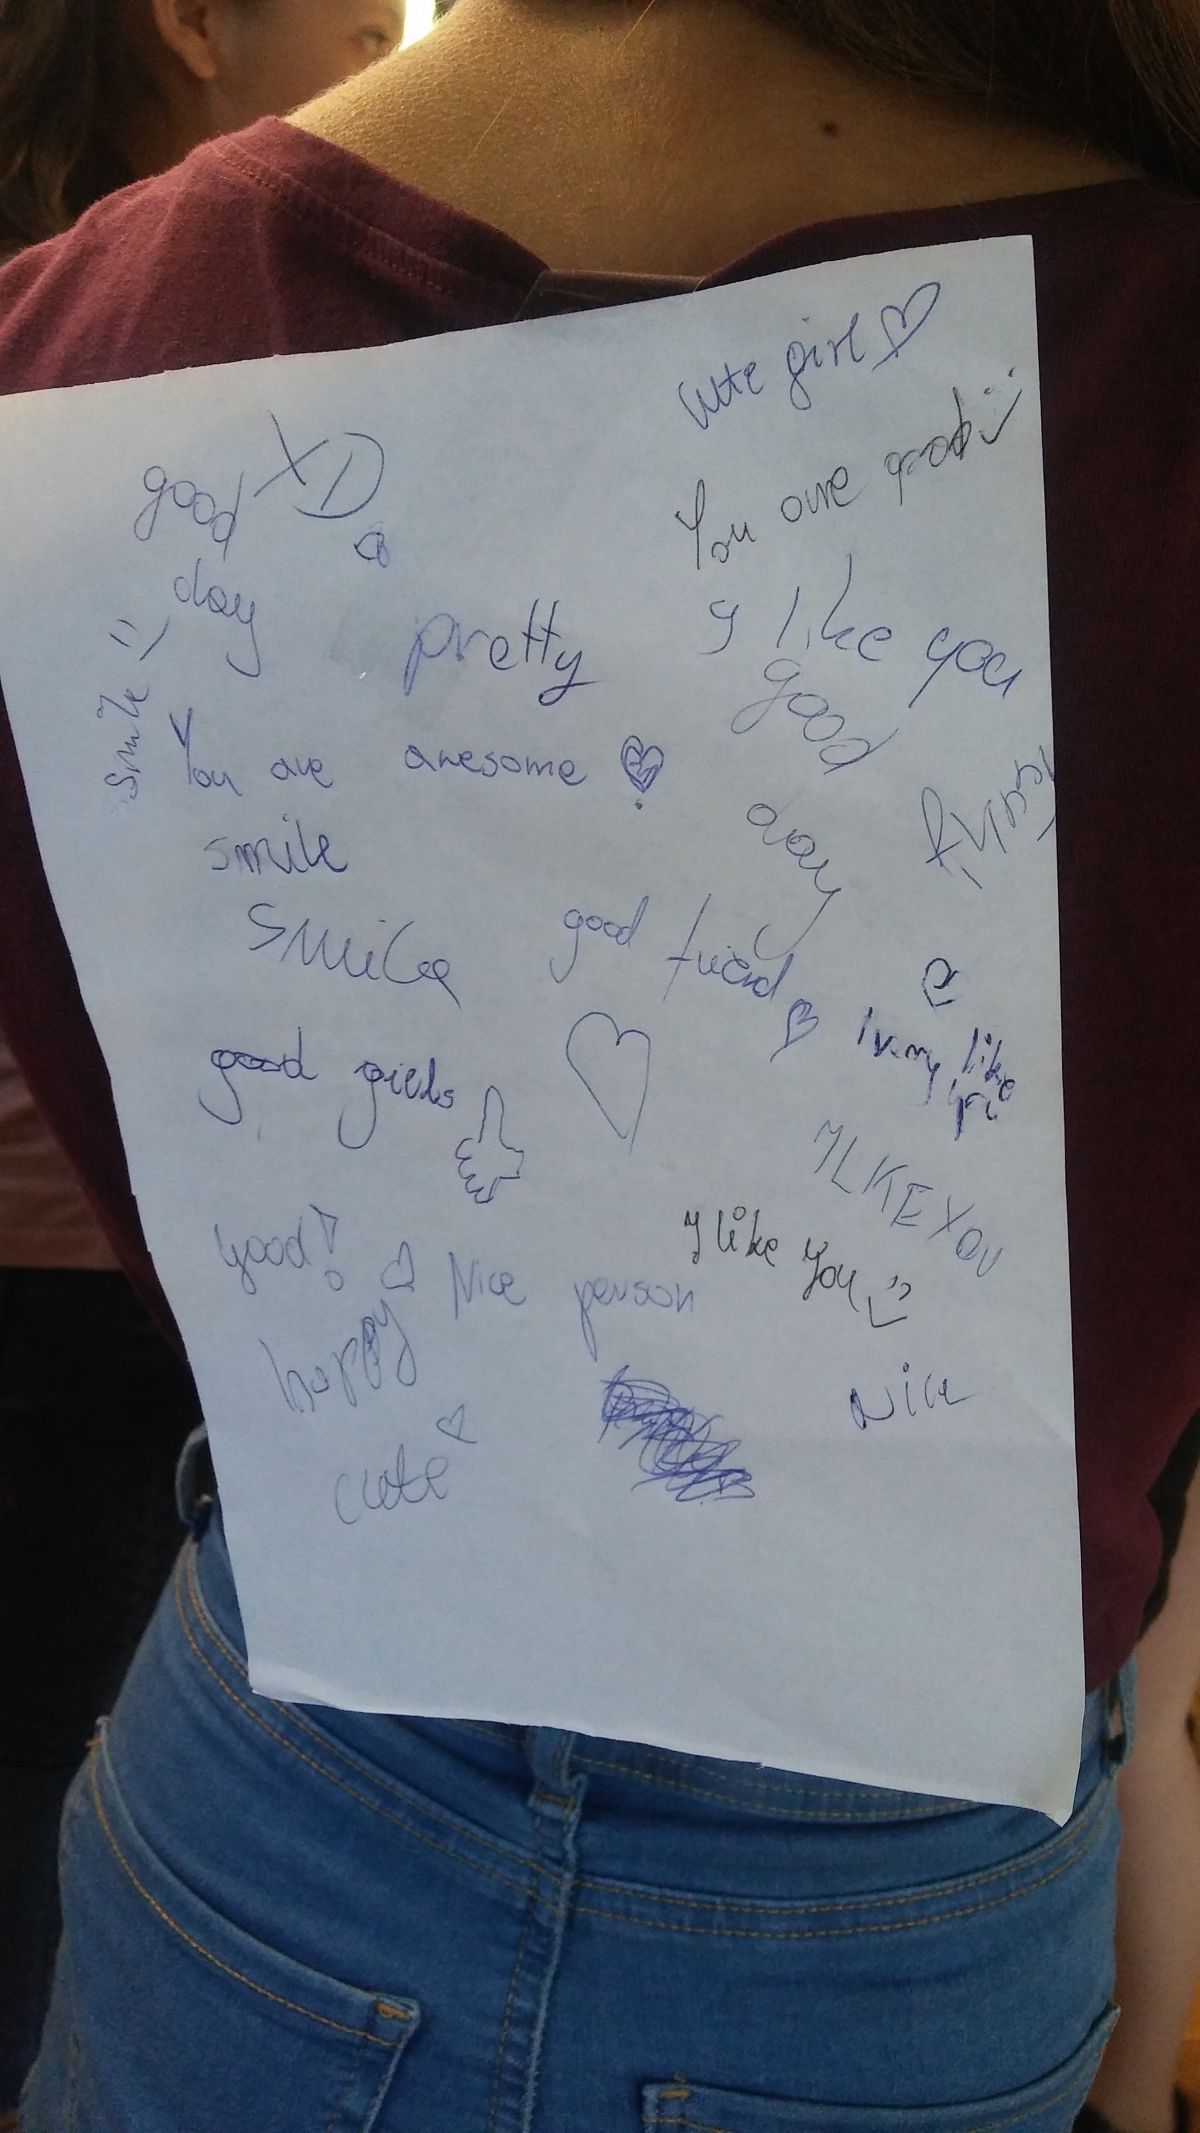 cute girl
You are good
good XD
day
I like you
pretty
good
day
smile
You are awesome
funny
smile
smile
good friend
I very like you
good girls
I LKE YOU
good!
I like you
Nice person
happy
Nice
cute